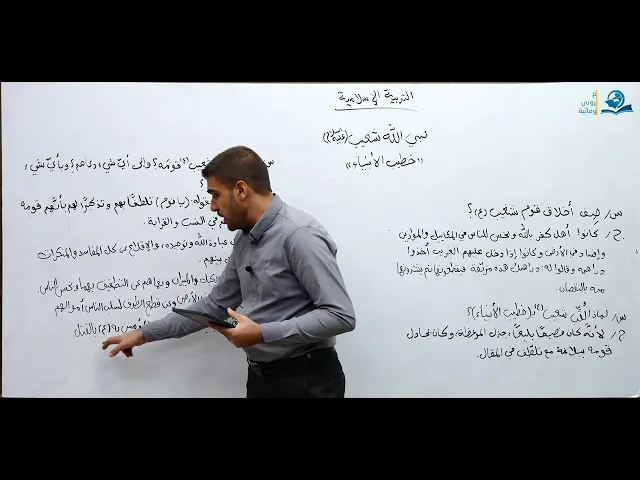 التربية الإسلامية
نبي الله شعيب (عليه السلام)
«خطيب الأنبياء»
س/ صِف أخلاق قوم شعيب (ع)؟
ج/ كانوا أهل كفر بالله وبخس للناس في المكاييل والموازين
وإفساد في الأرض وكانوا إذا دخل عليهم الغريب أخذوا
دراهمه وقالوا له: دراهمك هذه مزيّفة فيقطعونها ثم يشترونها
منه بالنقصان.
س/ لماذا لُقِّبَ شعيب (ع) بـ(خطيب الأنبياء)؟
ج/ لأنّه كان فصيحًا بليغًا، جزل الموعظة، وكان يجادل
قومه ببلاغة مع تلطّف في المقال.
شعيب (ع) قومه؟ وإلى أيّ شيء دعاهم؟ وبأيّ شيء
قوله: (يا قوم) تلطفًا بهم وتذكيرًا لهم بأنّهم قومه
في النسب والقرابة.
عبادة الله وتوحيده، والإقلاع عن كل المفاسد والمنكرات
بينهم.
الكيل والميزان ونهاهم عن التطفيف بهما وبخس الناس
الأرض وعن قطع الطرق لسلب الناس أموالهم
بالقتل.